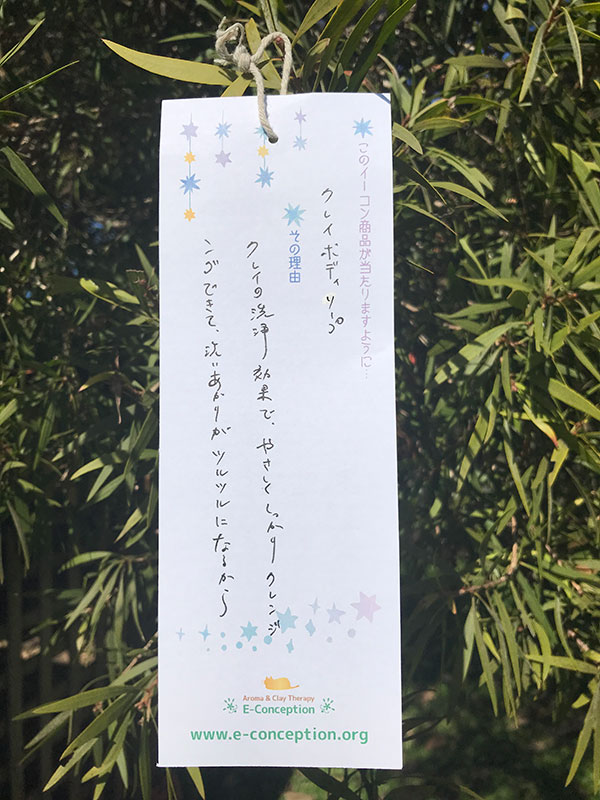 このイーコン商品が当たりますように…
クレイボディソープ
その理由
クレイの洗浄効果で、やさしくしっかりクレンジ
ングできて、洗いあがりがツルツルになるから
Aroma & Clay Therapy
E-Conception
www.e-conception.org